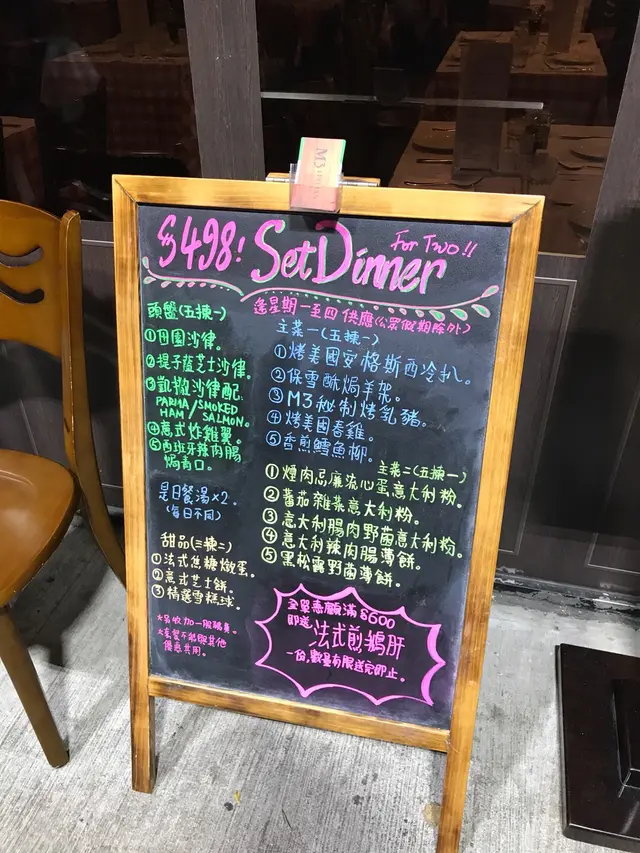 M3
$498! Set Dinner For Two!!
逢星期一至四供應(公眾假期除外)
頭盤(五揀一)
①田園沙律。
②提子藍芝士沙律。
③凱撒沙律配
PARMA/SMOKED
HAM/SALMON。
④意式炸雞翼。
⑤西班牙辣肉腸
焗青口。
是日餐湯×2。
(每日不同)
甜品(三揀二)
①法式焦糖燉蛋。
②意式芝士餅。
③精選雪糕球。
*另收加一服務費。
*套餐不能與其他
優惠共用。
主菜一(五揀一)
①烤美國安格斯西冷扒。
②保雪酥焗羊架。
③M3秘制烤乳豬。
④烤美國春雞。
⑤香煎鱈魚柳。
主菜二(五揀一)
①煙肉忌廉流心蛋意大利粉。
②蕃茄雜菜意大利粉。
③意大利腸肉野菌意大利粉。
④意大利辣肉腸薄餅。
⑤黑松露野菌薄餅。
全單惠顧滿$600
即送法式煎鵝肝
一份,數量有限送完即止。